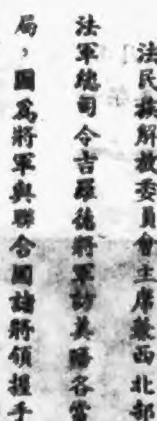 法民族解放委員會主席兼西北部
法軍總司令吉羅德將軍訪美晤各當
局，圖爲將軍與聯合國諸將領握手